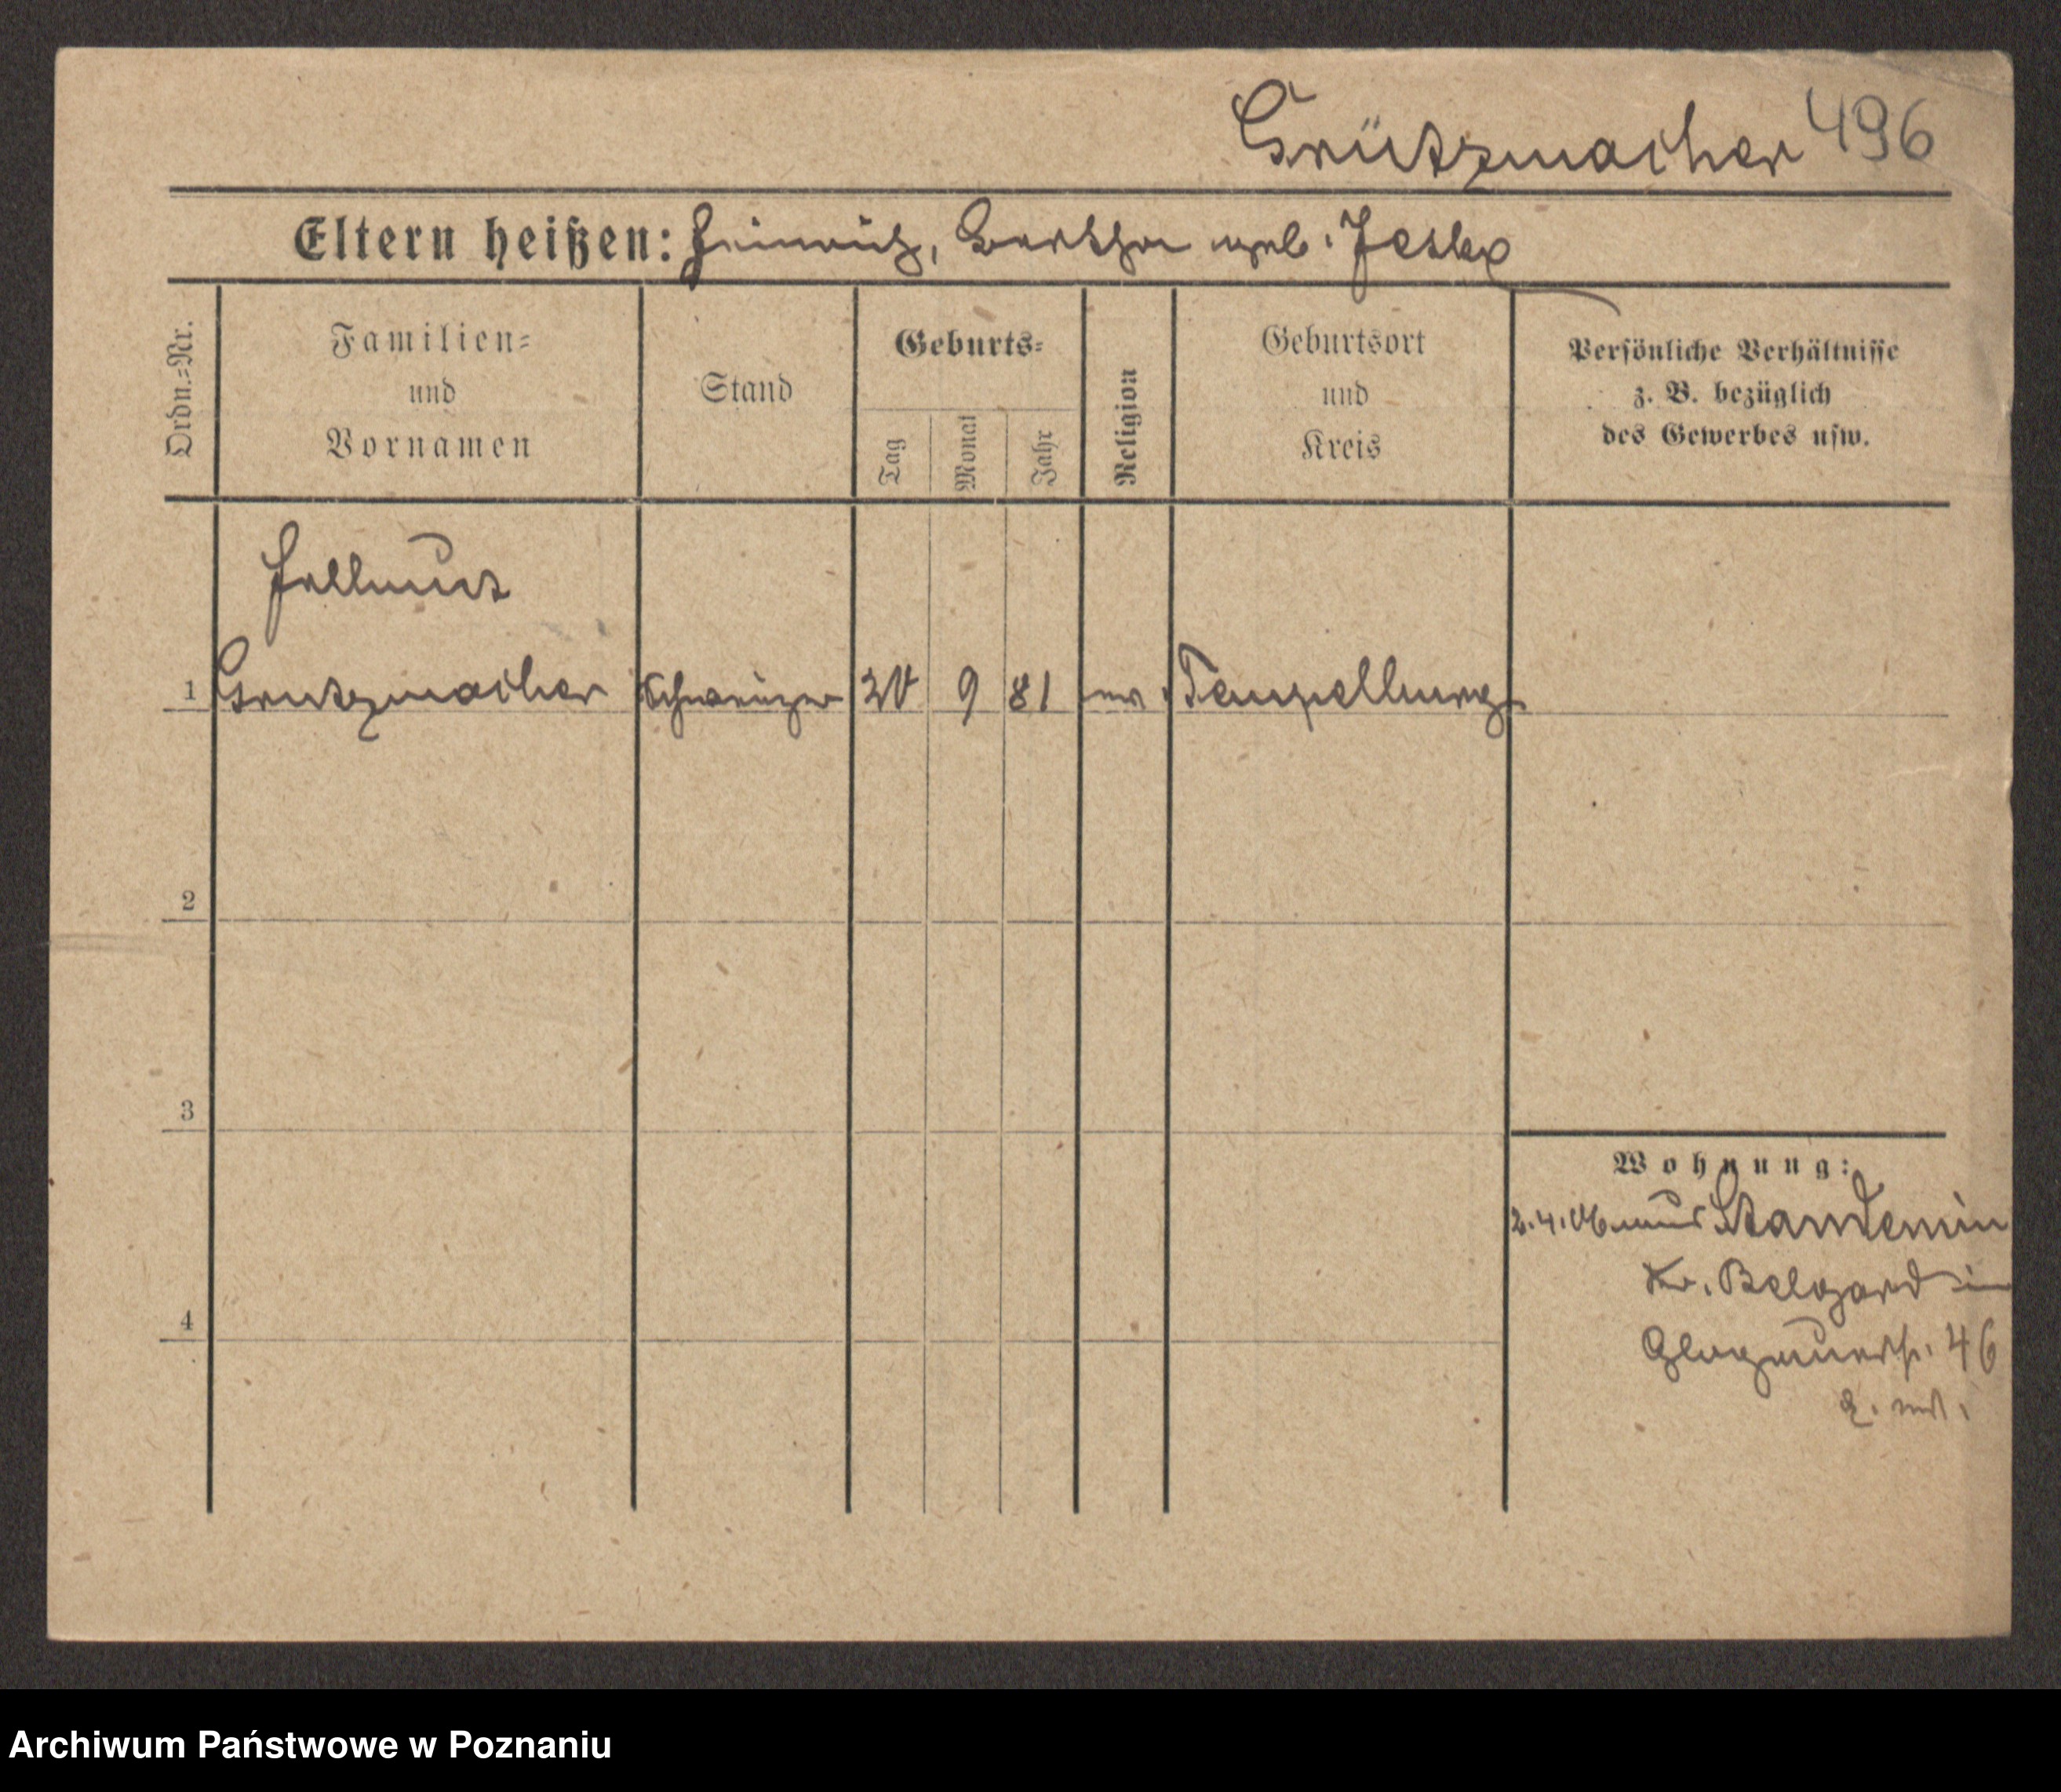 Grützmacher 496
Eltern heißen: Heinrich, Bertha geb. Jeske
Ordn.=Nr.
Familien=
und
Vornamen
Stand
Geburts=
Tag
Monat
Jahr
Religion
Geburtsort
und
Kreis
Persönliche Verhältnisse
z. B. bezüglich
des Gewerbes usw.
Hellmut
1 Grutzmacher 9 81 ev Tempelburg
2
3
4
Wohnung:
2.4.06 aus Standemin
Kr. Belgard in
Glogauerstr. 46
Archiwum Państwowe w Poznaniu